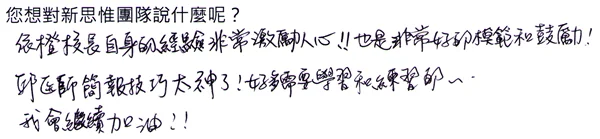 您想對新思惟團隊說什麼呢？
依橙校長自身的經驗非常激勵人心!!也是非常好的模範和鼓勵!
邱醫師簡報技巧太神了!好多需要學習和練習的~~
我會繼續加油!!